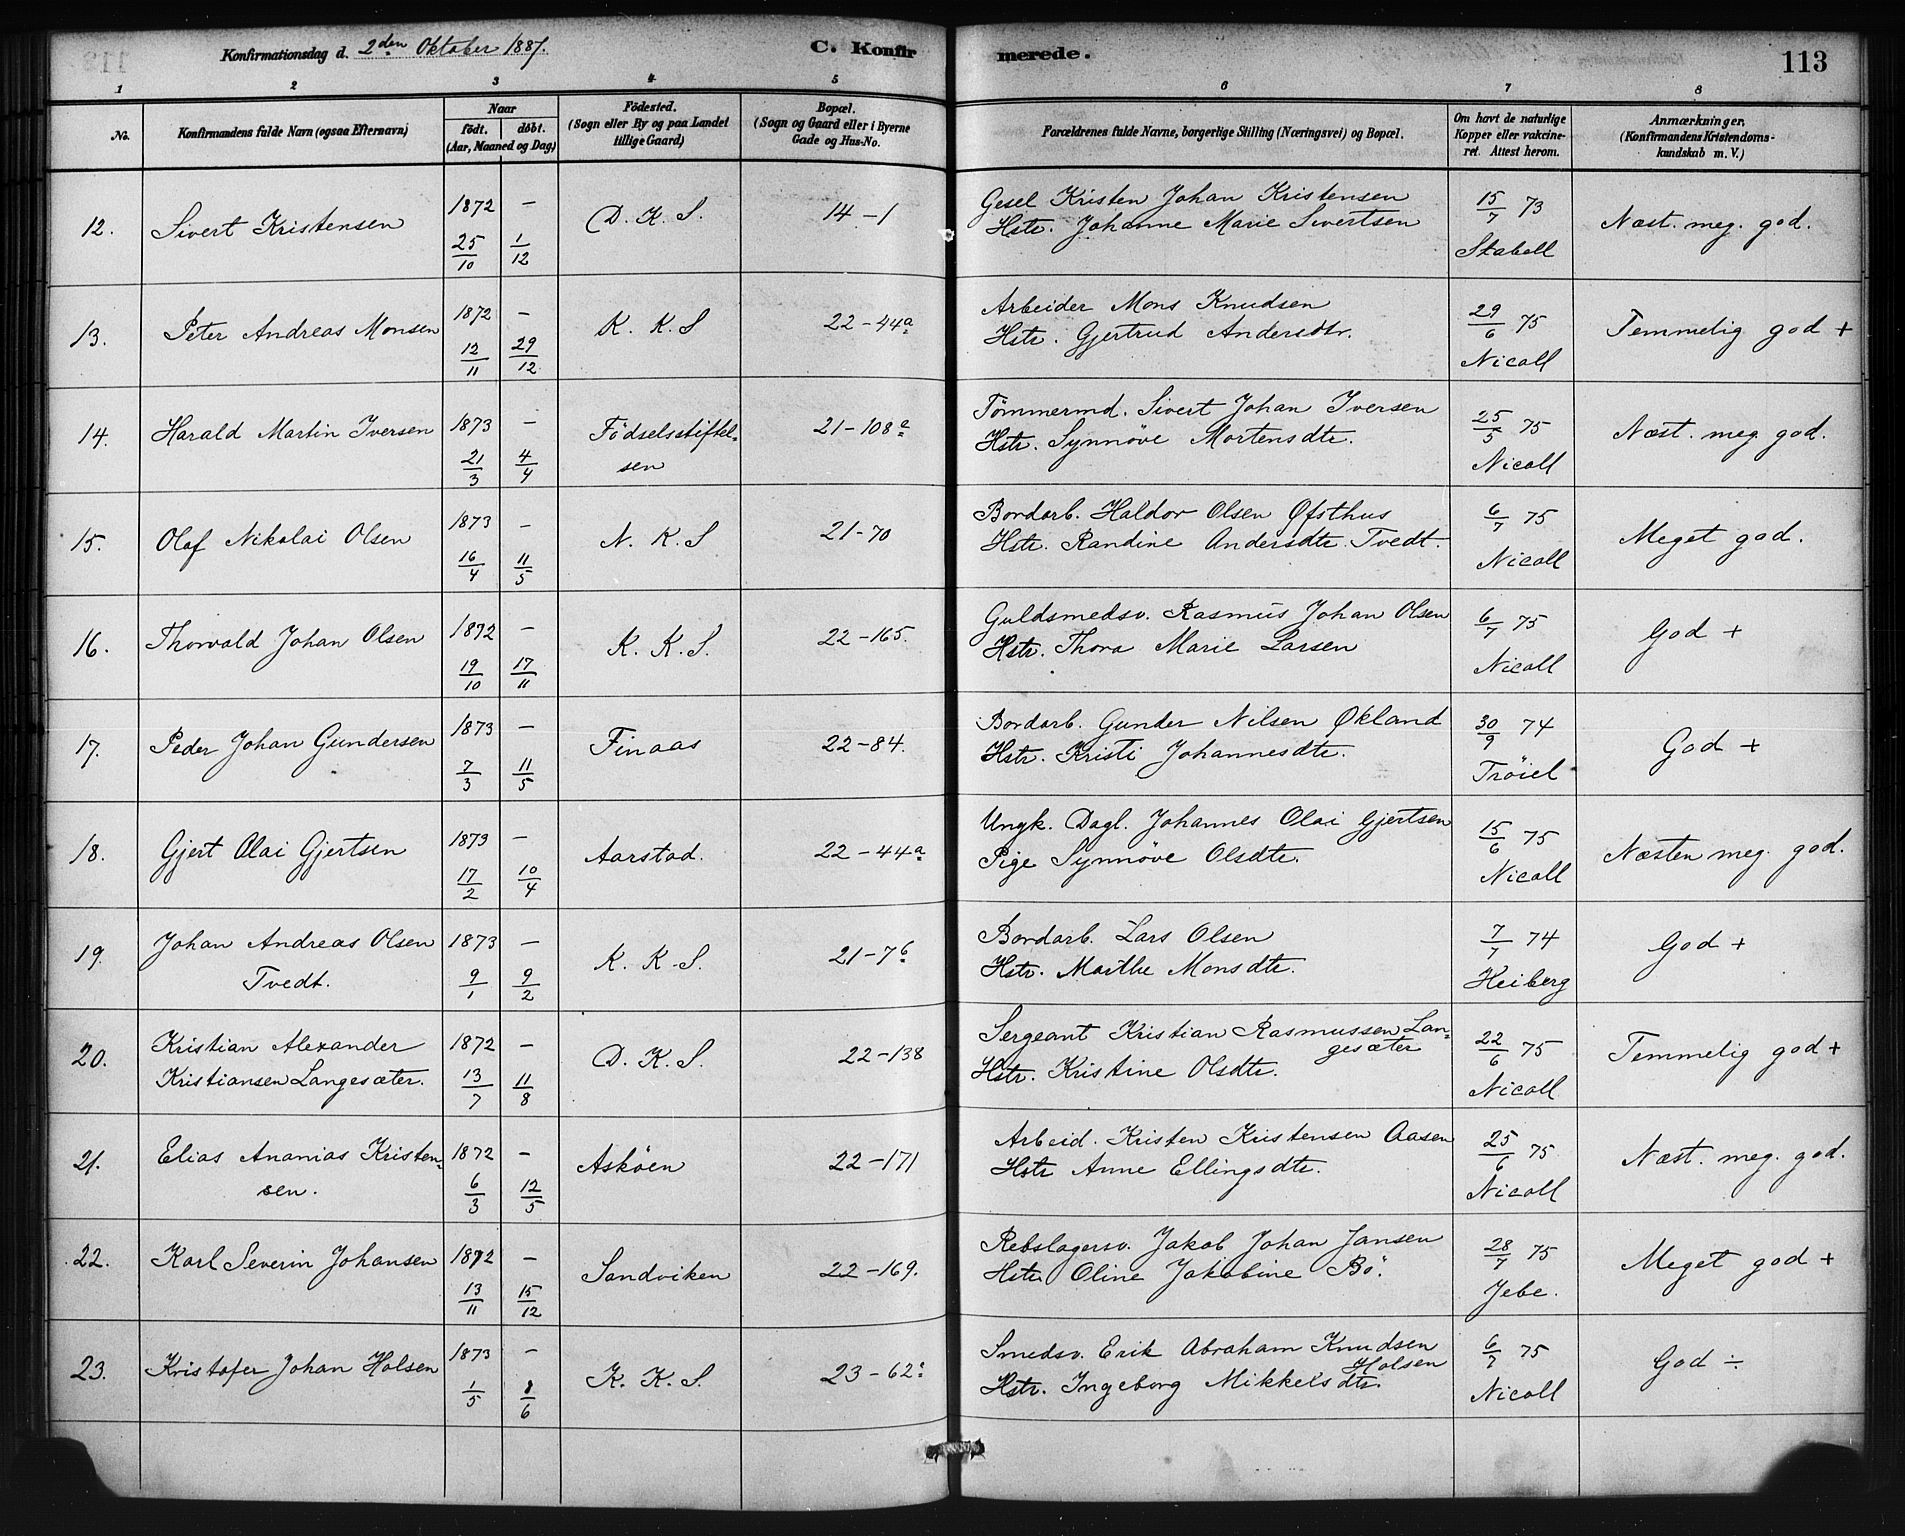 Konfirmationsdag d. 2den Oktober 1887.
C. Konfirmerede.
113
1 2 3 4 5 6 7 8
No.
Konfirmandens fulde Navn (ogsaa Efternavn)
Naar
födt. döbt.
(Aar, Maaned og Dag)
Födested.
(Sogn eller By og paa Landet
tillige Gaard)
Bopæl.
(Sogn og Gaard eller i Byerne
Gade og Hus-No.
Forældrenes fulde Navne, borgerlige Stilling (Næringsvei) og Bopæl.
Om havt de naturlige
Kopper eller vakcine-
ret. Attest herom.
Anmærkninger.
(Konfirmandens Kristendoms-
kundskab m. V.)
12. Sivert Kristensen 1872 25/10 — 1/12 D. K. S. 14-1
Gesel Kristen Johan Kristensen
Hstr. Johanne Marie Sivertsen
15/7 73 Stabell
Næst. meg. god.
13. Peter Andreas Monsen 1872 12/11 — 29/12 K. K. S 22-44a
Arbeider Mons Knudsen
Hstr. Gjertrud Andersdtr.
29/6 75 Nicoll
Temmelig god +
14. Harald Martin Iversen 1873 21/3 — 4/4 Födselsstiftel-
sen 21-108e
Tömmermd. Sivert Johan Iversen
Hstr. Synnöve Mortensdtr.
25/5 75 Nicoll
Næst. meg. god.
15. Olaf Nikolai Olsen 1873 16/4 — 11/5 N. K. S 21-70
Bordarb. Haldor Olsen Øfsthus
Hstr. Randine Andersdtr. Tvedt.
6/7 75 Nicoll
Meget god.
16. Thorvald Johan Olsen 1872 19/10 — 17/11 K. K. S. 22-165.
Guldsmedsv. Rasmus Johan Olsen
Hstr. Thora Marie Larsen
6/7 75 Nicoll
God +
17. Peder Johan Gundersen 1873 7/3 — 11/5 Finaas 22-84.
Bordarb. Gunder Nilsen Økland
Hstr. Kristi Johannesdtr.
30/9 74 Tröiel
God +
18. Gjert Olai Gjertsen 1873 17/2 — 10/4 Aarstad. 22-44a
Ungk. Dagl. Johannes Olai Gjertsen
Pige Synnöve Olsdtr.
15/6 75 Nicoll
Næsten meg. god.
19. Johan Andreas Olsen
Tvedt. 1873 9/1 — 9/2 K. K. S. 21-7b
Bordarb. Lars Olsen
Hstr. Marthe Monsdtr.
7/7 74 Heiberg
God +
20. Kristian Alexander
Kristiansen Langesæter. 1872 13/7 — 11/8 D. K. S. 22-138
Sergeant Kristian Rasmussen Lan-
gesæter
Hstr. Kristine Olsdtr.
22/6 75 Nicoll
Temmelig god +
21. Elias Ananias Kristen-
sen. 1872 6/3 — 12/5 Asköen 22-171
Arbeid. Kristen Kristensen Aasen
Hstr Anne Ellingsdtr.
25/6 75 Nicoll
Næst. meg. god.
22. Karl Severin Johansen 1872 13/11 — 15/12 Sandviken 22-169.
Rebslagersv. Jakob Johan Jansen
Hstr Oline Jakobine Bö.
28/7 75 Jebe.
Meget god +
23. Kristofer Johan Holsen 1873 1/5 — 8/6 K. K. S. 23-62
Smedsv. Erik Abraham Knudsen
Holsen
Hstr. Ingeborg Mikkelsdtr.
6/7 75 Nicoll
God ÷